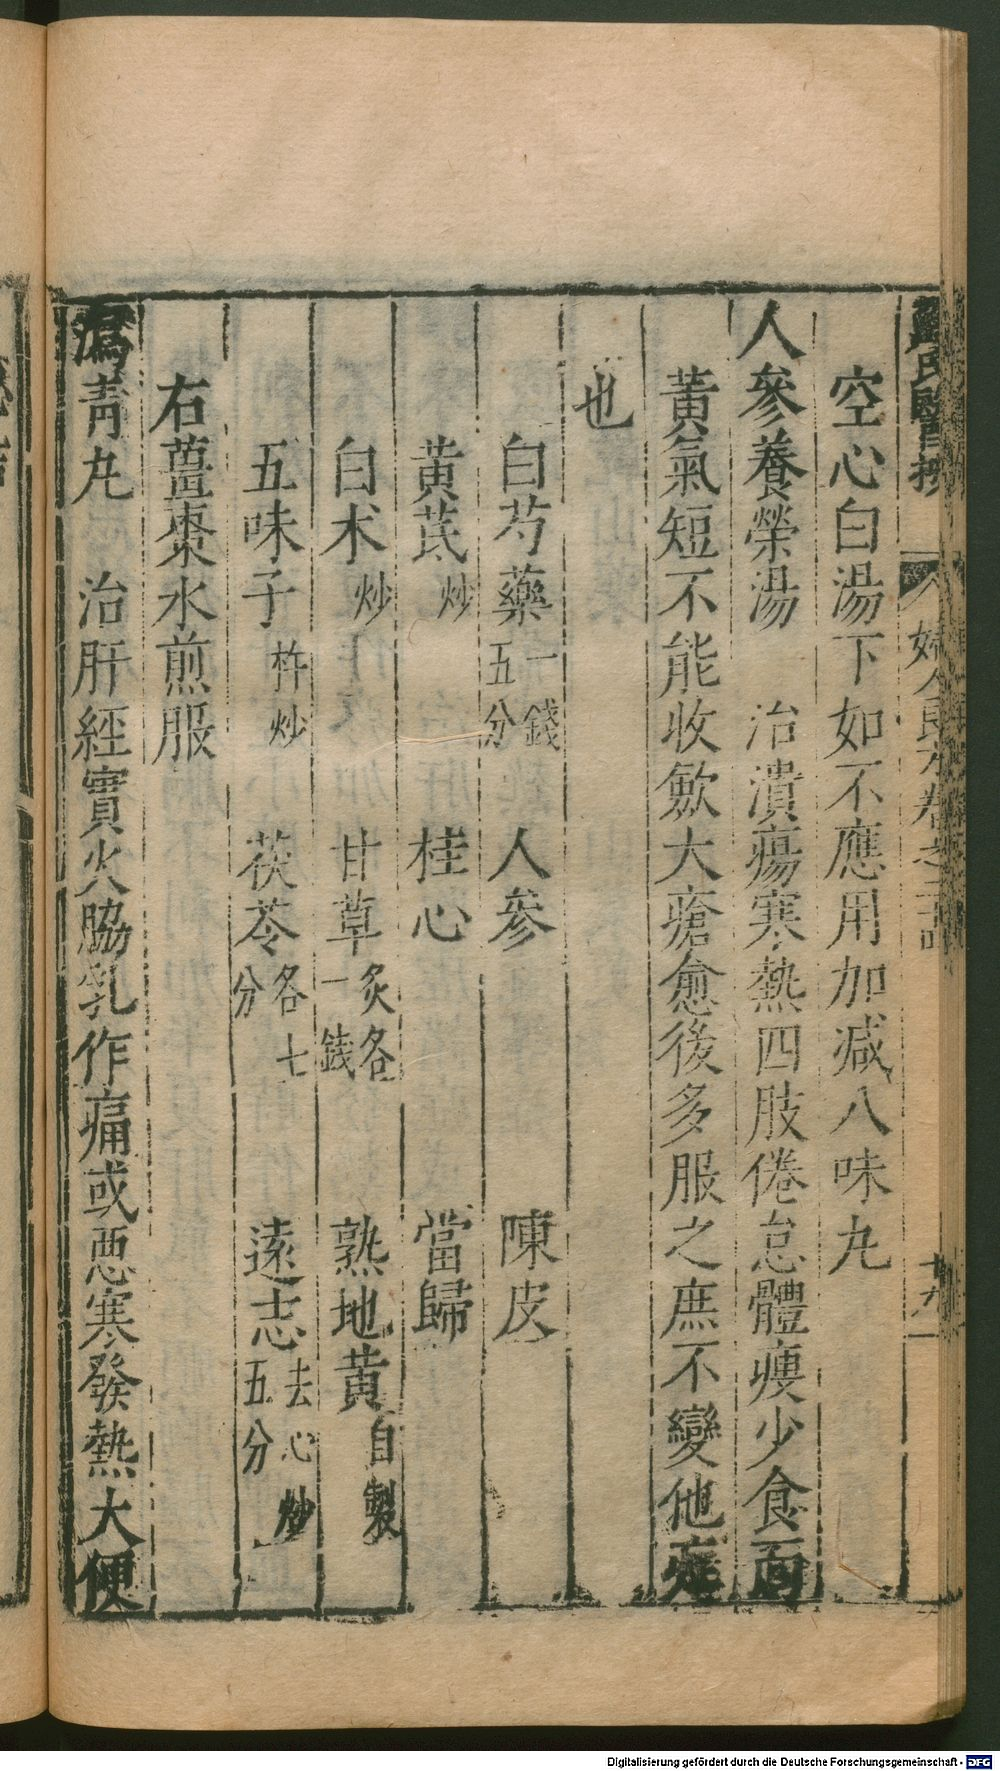 空心白湯下如不應用加减八味丸
人參養榮湯　治潰瘍寒熱四肢倦怠體瘦少食面
黄氣短不能收斂大瘡愈後多服之庶不變他症
也
白芍藥一錢五分　人參　陳皮
黄芪炒　桂心　當歸
白术炒　甘草炙各一錢　熟地黄自製
五味子杵炒　茯苓各七分　遠志去心炒五分
右薑棗水煎服
瀉青丸　治肝經實火脇乳作痛或悪寒發熱大便
Digitalisierung gefördert durch die Deutsche Forschungsgemeinschaft - DFG